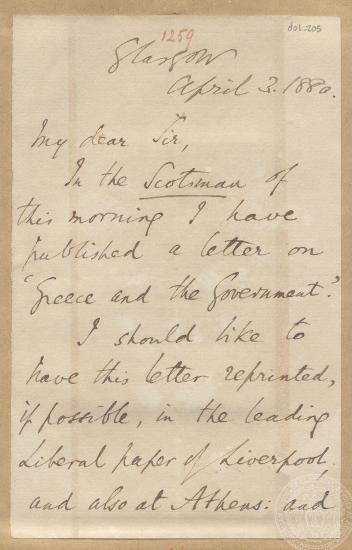 1259
doc.205
Glasgow
April 3. 1880.
My dear Sir,
In the Scotsman of
this morning I have
published a letter on
"Greece and the Government".
I should like to
have this letter reprinted,
if possible, in the leading
Liberal paper of Liverpool,
and also at Athens: and